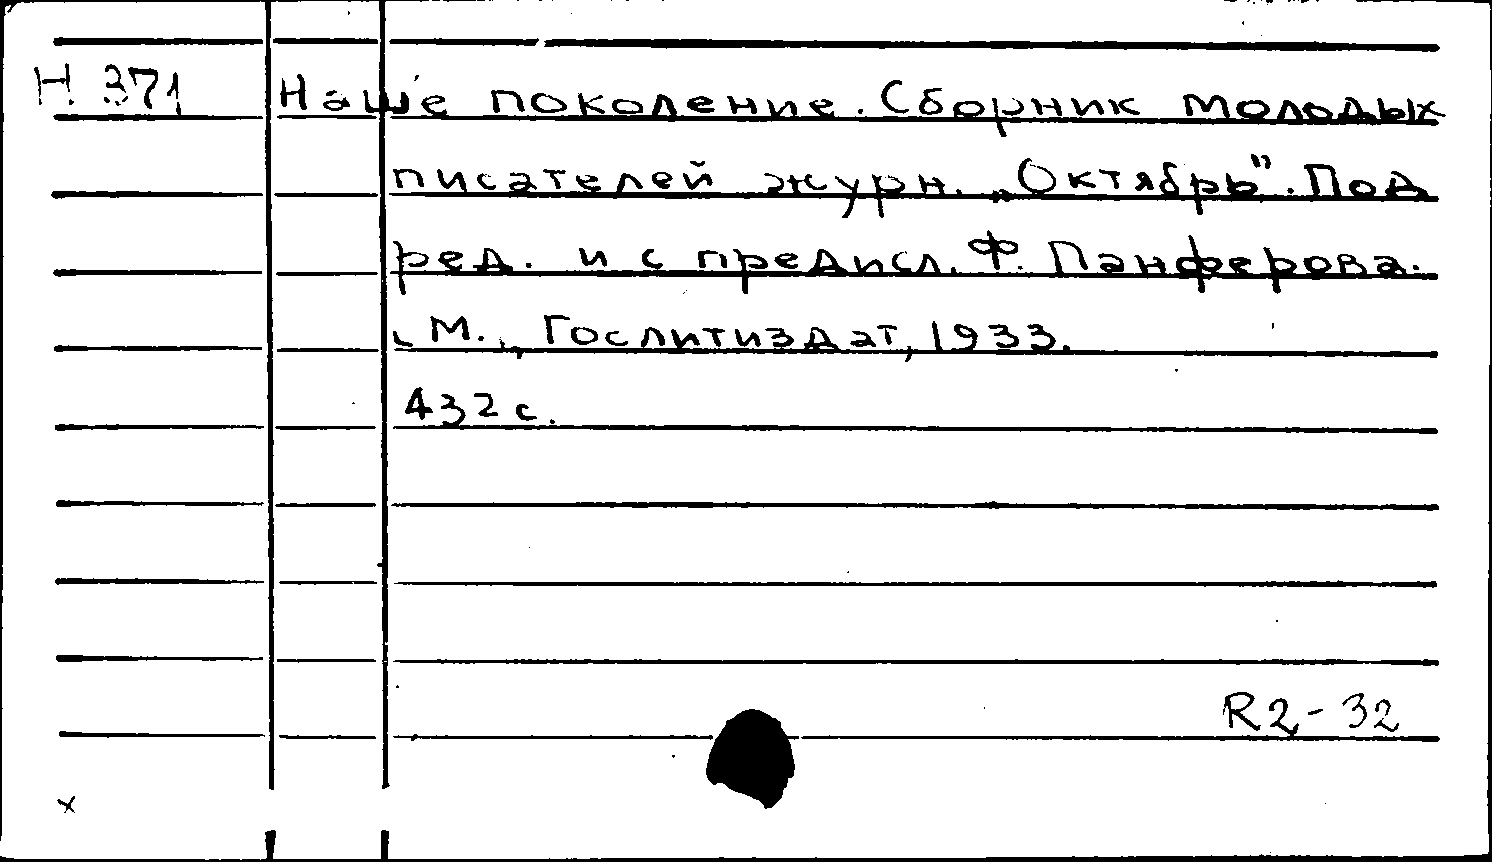 Н.371 Наше поколение. Сборник молодых
писателей журн. „Октябрь". Под
ред. и с предисл. Ф. Панферова.
М., Гослитиздат, 1933.
432 с.
R2-32
x